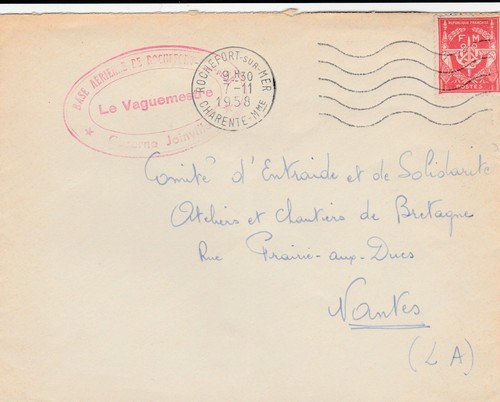 BASE AÉRIENNE DE ROCHEFORT
Le Vaguemestre
Caserne Joinville
ROCHEFORT-SUR-MER
9H30
7-11
1958
CHARENTE-Mme
RÉPUBLIQUE FRANÇAISE
F M
POSTES
Comité d'Entraide et de Solidarité
Ateliers et Chantiers de Bretagne
Rue Prairie-aux-Ducs
Nantes
(L A)